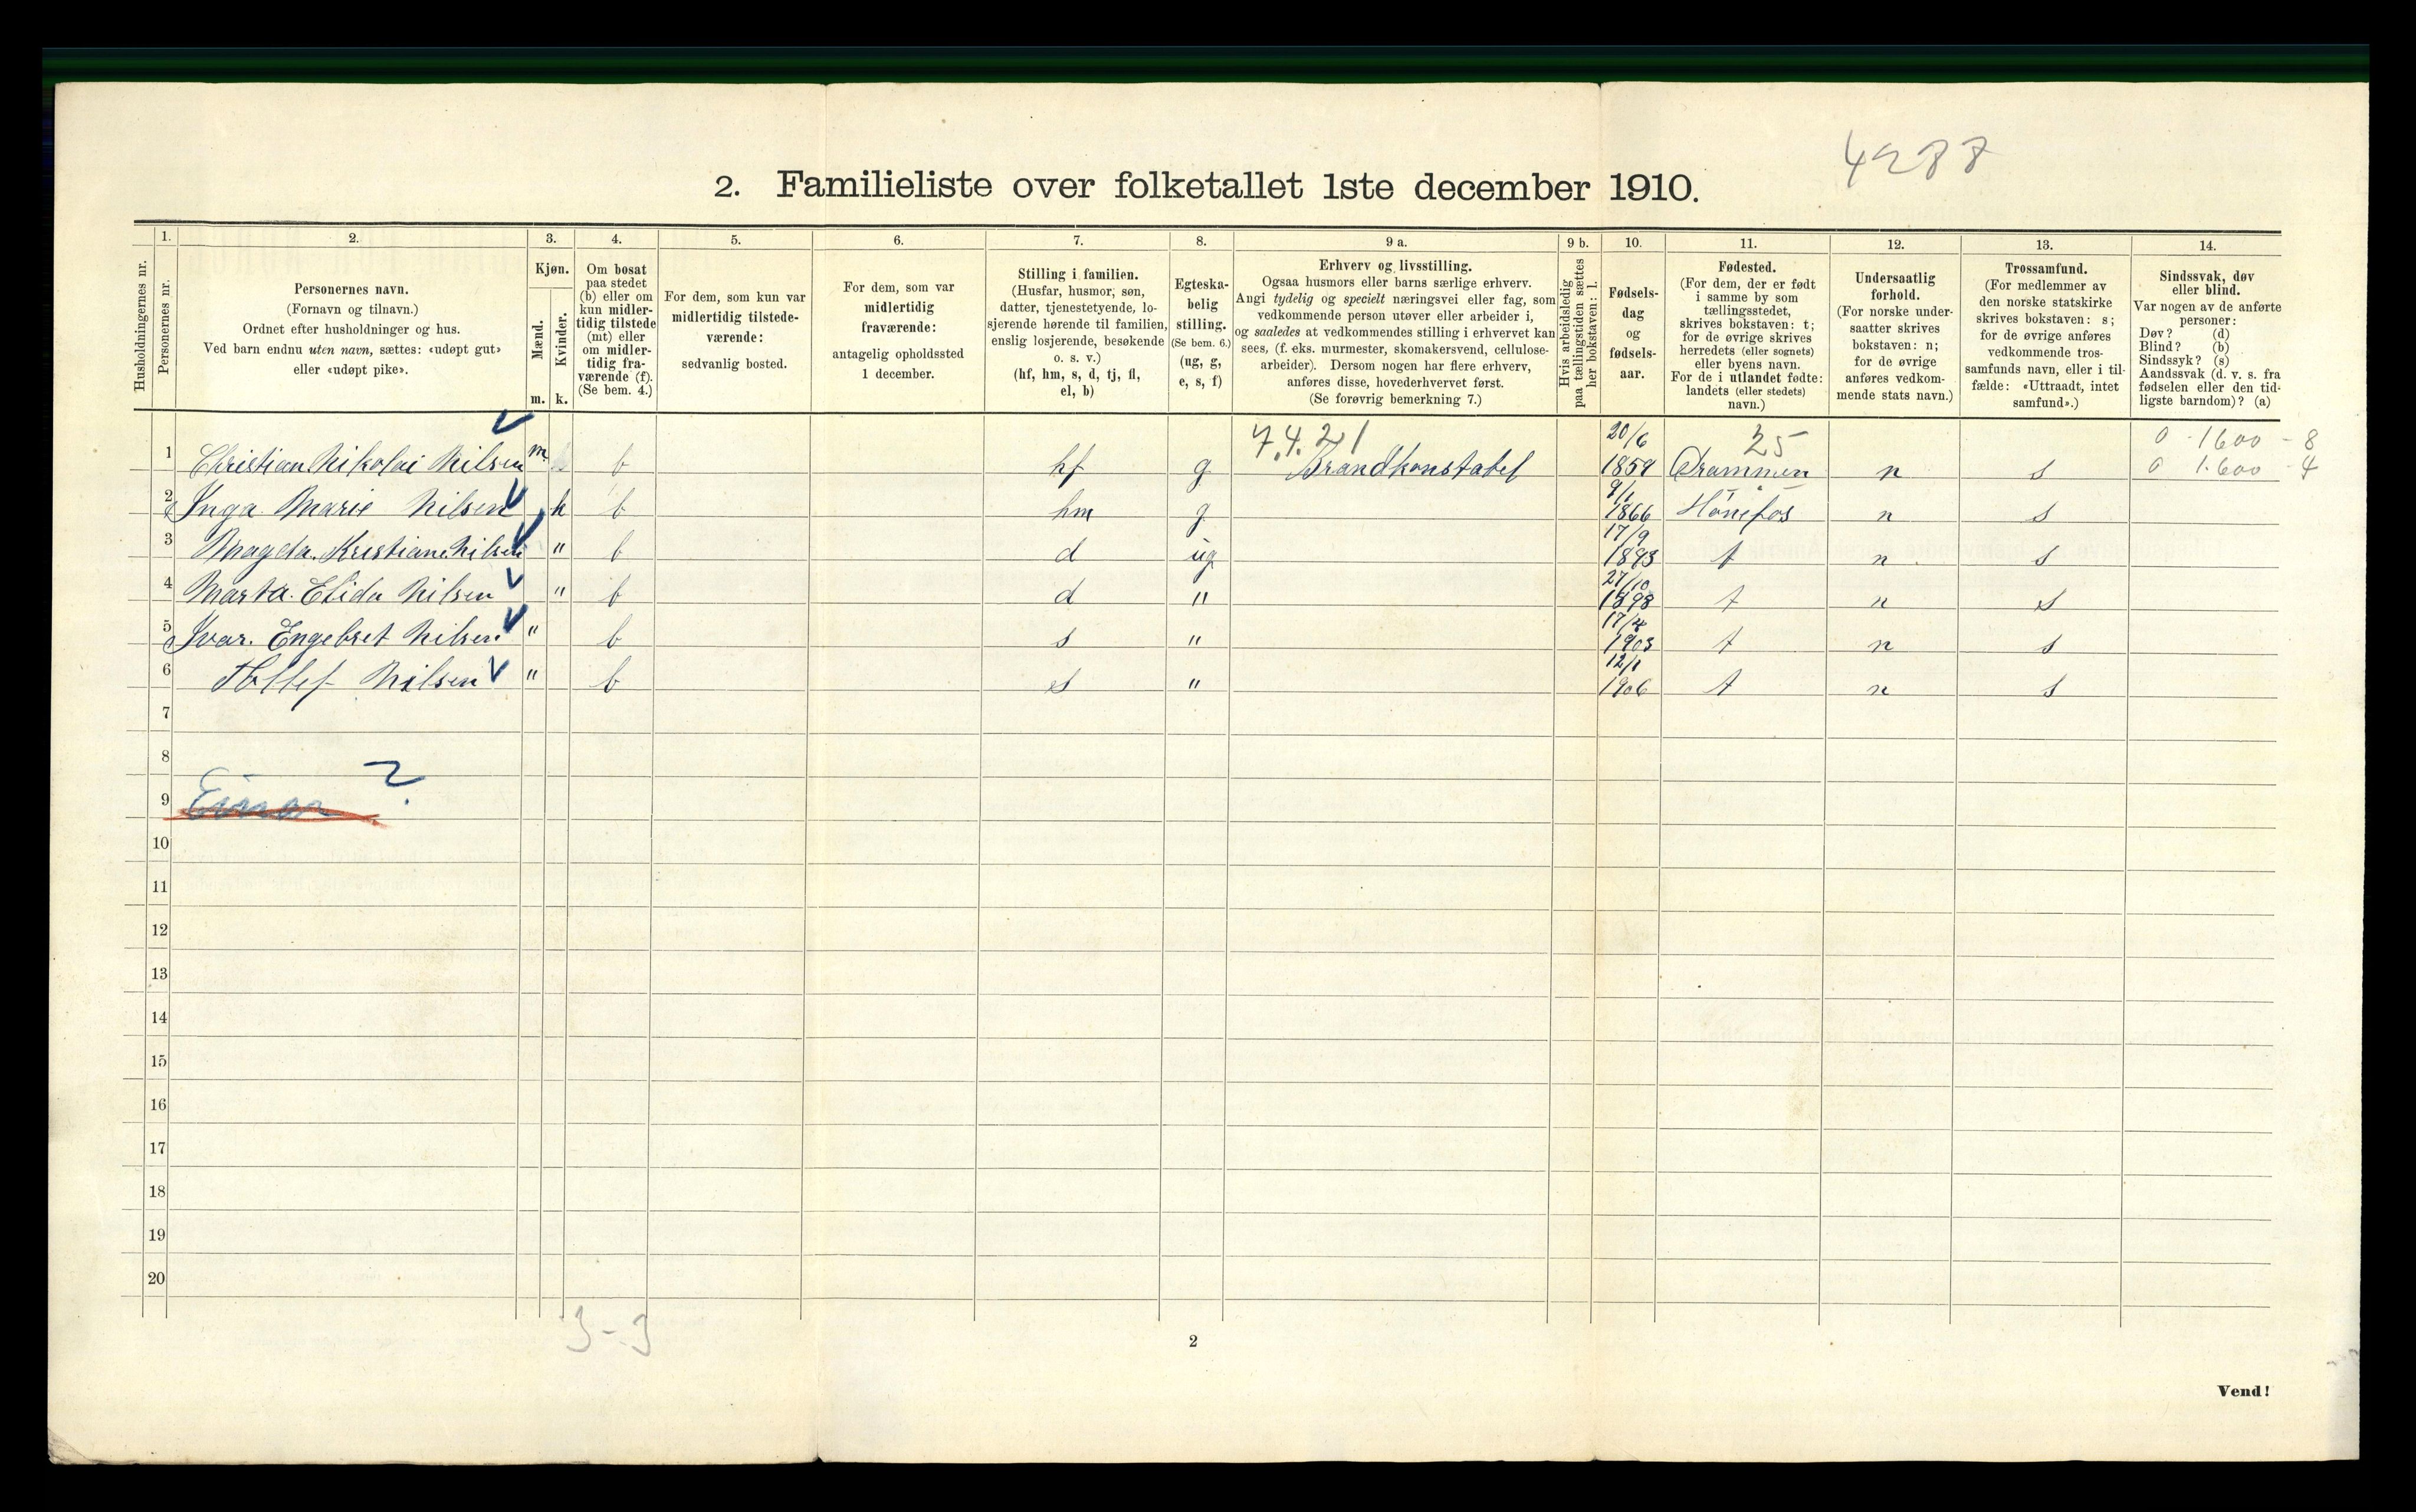 4288
2. Familieliste over folketallet 1ste december 1910.
Husholdningernes nr.
1.
Personernes nr.
2.
Personernes navn.
(Fornavn og tilnavn.)
Ordnet efter husholdninger og hus.
Ved barn endnu uten navn, sættes: «udøpt gut»
eller «udøpt pike».
3.
Kjøn.
Mænd.
m.
Kvinder.
k.
4.
Om bosat
paa stedet
(b) eller om
kun midler-
tidig tilstede
(mt) eller
om midler-
tidig fra-
værende (f).
(Se bem. 4.)
5.
For dem, som kun var
midlertidig tilstede-
værende:
sedvanlig bosted.
6.
For dem, som var
midlertidig
fraværende:
antagelig opholdssted
1 december.
7.
Stilling i familien.
(Husfar, husmor, søn,
datter, tjenestetyende, lo-
sjerende hørende til familien,
enslig losjerende, besøkende
o. s. v.)
(hf, hm, s, d, tj, fl,
el, b)
8.
Egteska-
belig
stilling.
(Se bem. 6.)
(ug, g,
e, s, f)
9 a.
Erhverv og livsstilling.
Ogsaa husmors eller barns særlige erhverv.
Angi tydelig og specielt næringsvei eller fag, som
vedkommende person utøver eller arbeider i,
og saaledes at vedkommendes stilling i erhvervet kan
sees, (f. eks. murmester, skomakersvend, cellulose-
arbeider). Dersom nogen har flere erhverv,
anføres disse, hovederhvervet først.
(Se forøvrig bemerkning 7.)
9 b.
Hvis arbeidsledig
paa tællingstiden sættes
her bokstaven: l.
10.
Fødsels-
dag
og
fødsels-
aar.
11.
Fødested.
(For dem, der er født
i samme by som
tællingsstedet,
skrives bokstaven: t;
for de øvrige skrives
herredets (eller sognets)
eller byens navn.
For de i utlandet fødte:
landets (eller stedets)
navn.)
12.
Undersaatlig
forhold.
(For norske under-
saatter skrives
bokstaven: n;
for de øvrige
anføres vedkom-
mende stats navn.)
13.
Trossamfund.
(For medlemmer av
den norske statskirke
skrives bokstaven: s;
for de øvrige anføres
vedkommende tros-
samfunds navn, eller i til-
fælde: «Uttraadt, intet
samfund».)
14.
Sindssvak, døv
eller blind.
Var nogen av de anførte
personer:
Døv? (d)
Blind? (b)
Sindssyk? (s)
Aandssvak (d. v. s. fra
fødselen eller den tid-
ligste barndom)? (a)
7.4.21 20/6 25 0 - 1600 - 8
1 Christian Nikolai Nilsen m b hf g Brandkonstabel 1859 Drammen n s 0 1.600 - 4
2 Inga Marie Nilsen k b hm g 9/1 1866 Hønefos n s
3 Magda Kristiane Nilsen " b d ug 17/9 1893 t n s
4 Marta Elida Nilsen " b d " 27/10 1898 t n s
5 Ivar Engebret Nilsen " b s " 17/4 1903 t n s
6 Tollef Nilsen " b s " 12/1 1906 t n s
7
8
9 Einar ?
10
11
12
13
14
15
16
17
18
19
20
3-3
2
Vend!